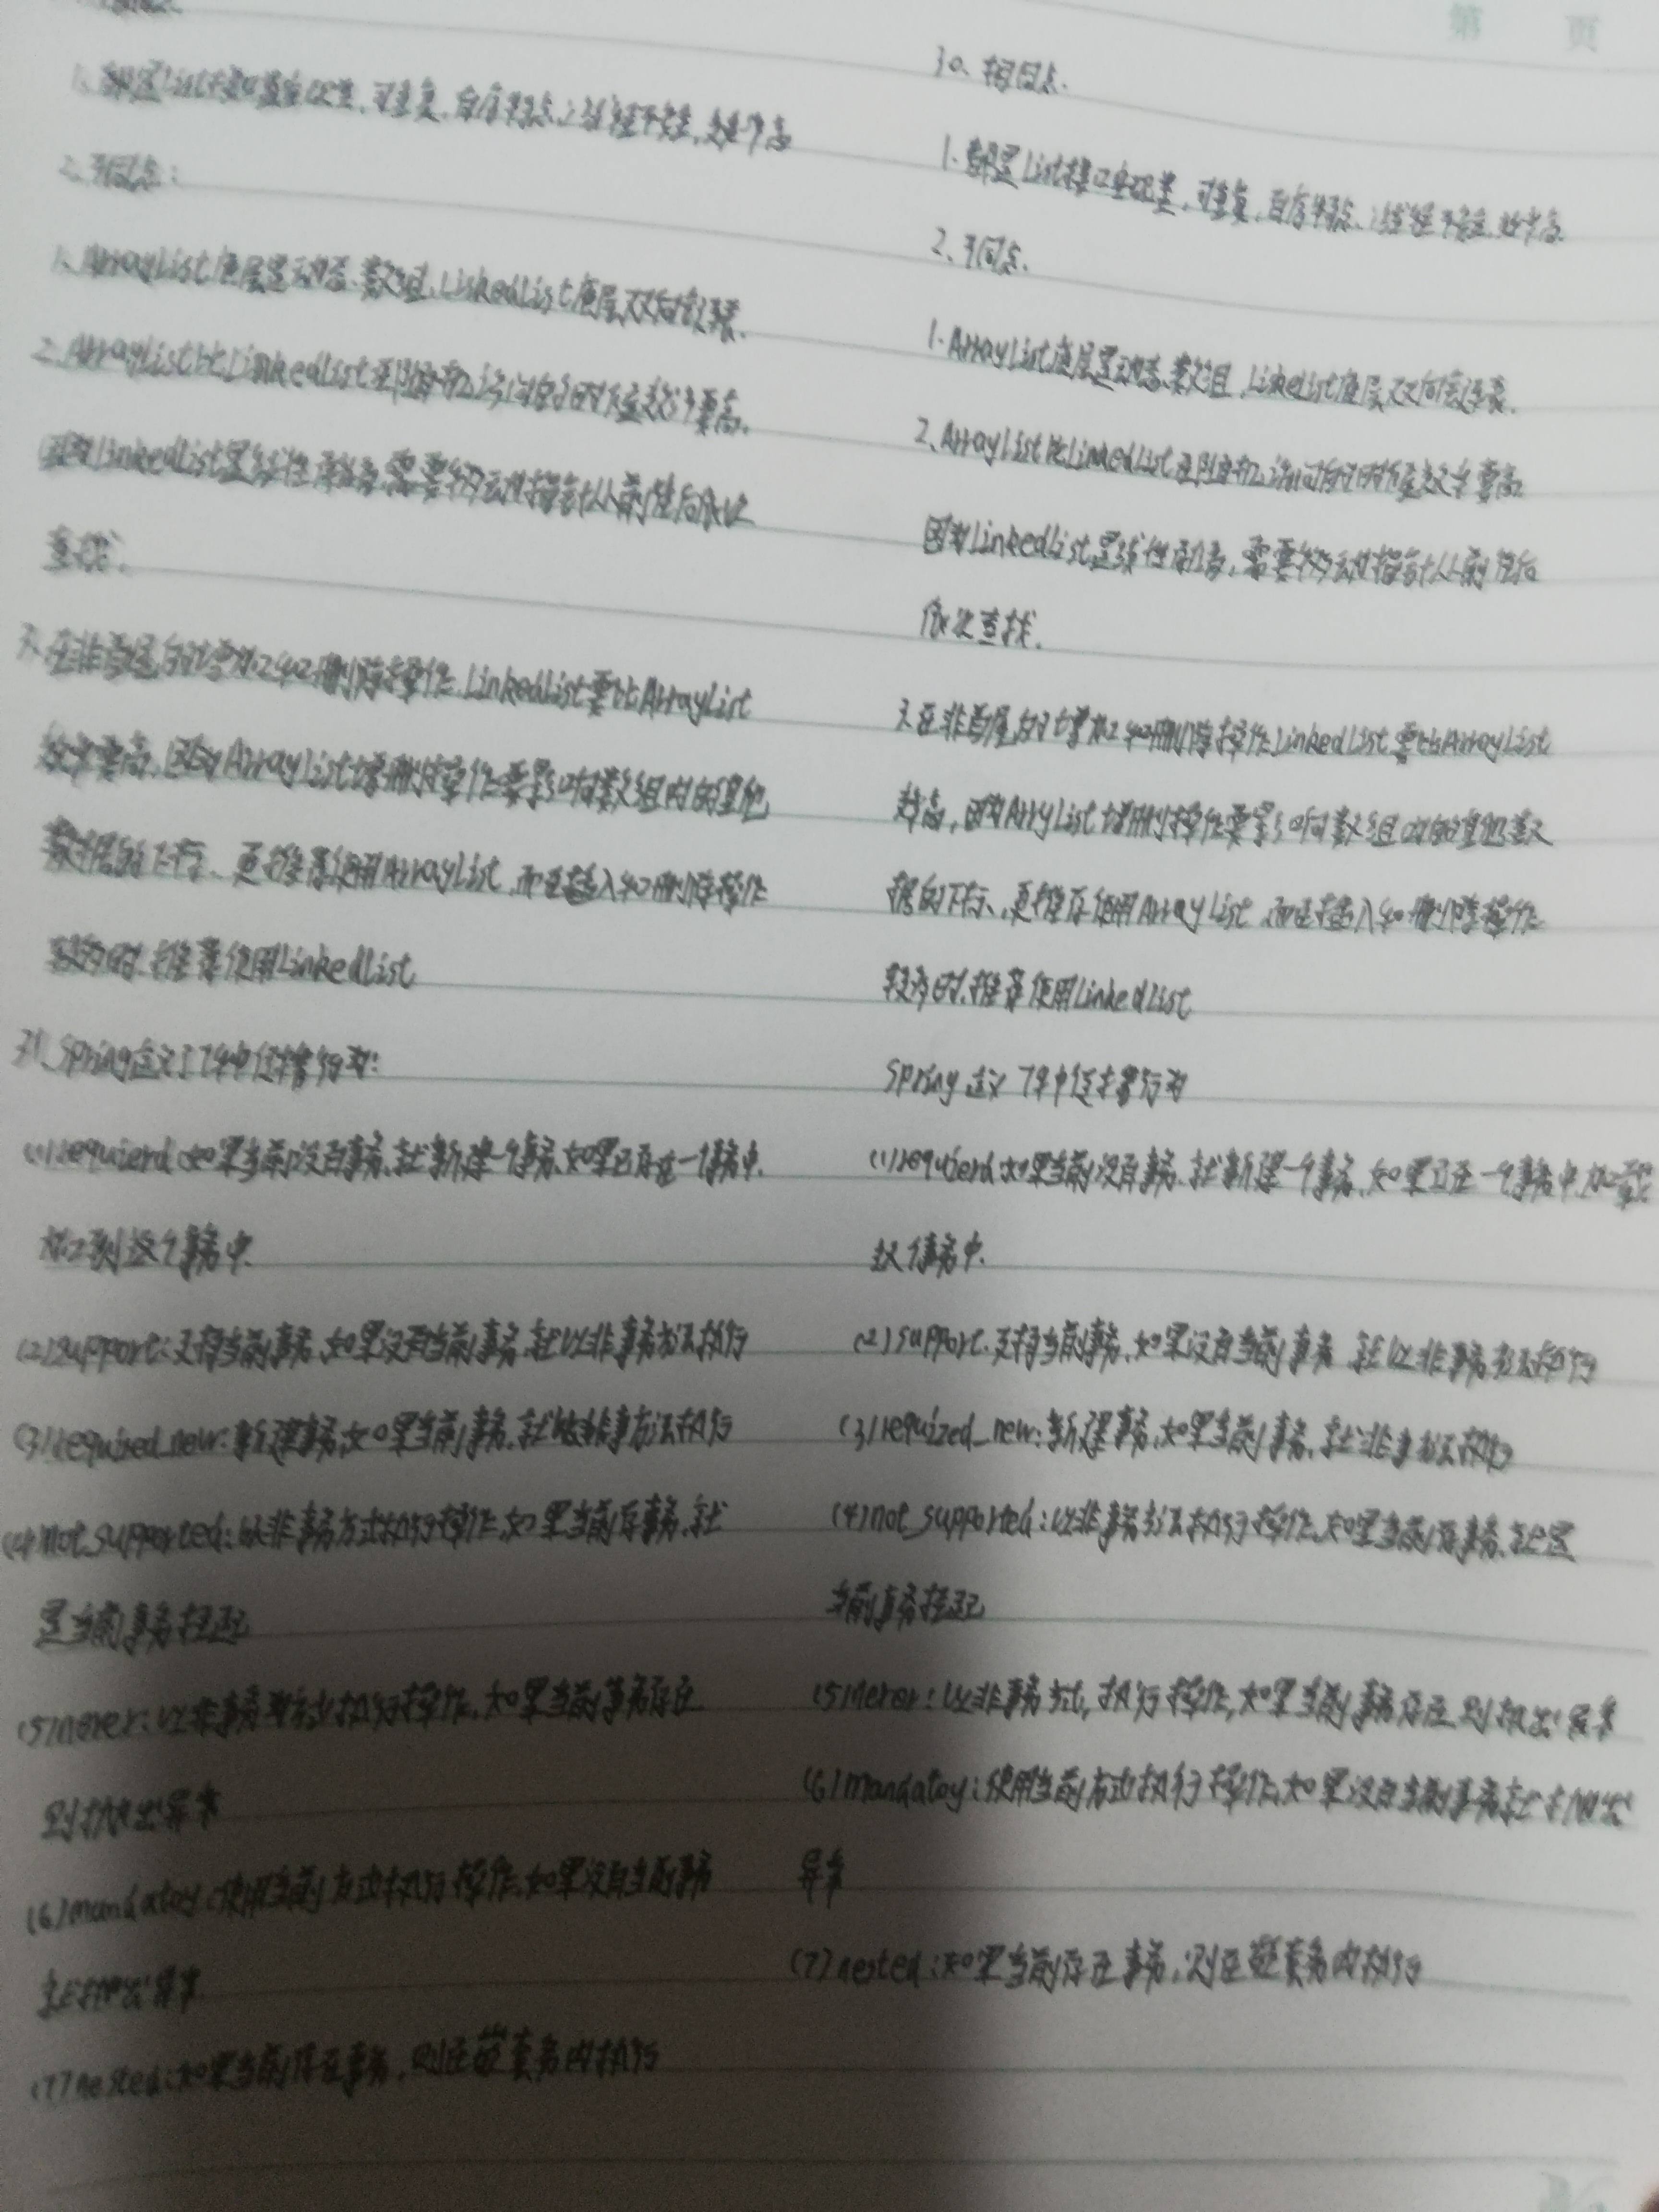 第 页
1.都是List接口实现类,可重复,有序特点,线程不安全,效率高
2.不同点:
1.ArrayList底层是动态数组,LinkedList底层双向链表.
2.ArrayList比LinkedList在随机访问的时候效率要高.
因为LinkedList是线性存储,需要移动指针从前往后依次
查找.
3.在非首尾的增加和删除操作LinkedList要比ArrayList
效率要高,因为ArrayList增删操作要影响数组内的其他
数据的下标、更推荐使用ArrayList,而在插入和删除操作
较多时,推荐使用LinkedList
31.Spring定义了7种传播行为:
(1)requierd:如果当前没有事务,就新建一个事务,如果已存在一个事务中.
加到这个事务中.
(2)support:支持当前事务,如果没有当前事务,就以非事务方法执行
(3)required_new:新建事务,如果当前事务,就以非事方法执行
(4)not_supported:以非事务方式执行操作,如果当前存事务,就
是当前事务挂起
(5)never:以非事务方式执行操作,如果当前事务存在
则抛出异常
(6)mandatoy:使用当前方式执行操作,如果没有当前事务
就抛出异常
(7)nested:如果当前存在事务,则在嵌套务内执行
30、相同点.
1.都是List接口实现类,可重复,有序特点、线程不安全,效率高.
2.不同点.
1.ArrayList底层是动态数组,LinkeList底层双向链表.
2、ArrayList比LinkedList在随机访问的时候效率要高
因为LinkedList是线性存储,需要移动指针从前往后
依次查找.
3.在非首尾的增加和删除操作LinkedList要比ArrayList
效高,因为ArryList增删操作要影响数组内的其他数
据的下标、更推存使用ArrayList,而在插入和删除操作
较多时,推荐使用LinkedList
Spring定义7种传播行为
(1)requierd:如果当前没有事务,就新建一个事务,如果已在一个事务中,加载
这个事务中.
(2)support:支持当前事务,如果没有当前事务 就以非事务方法执行
(3)required_new:新建事务,如果当前事务,就非事方法执行
(4)not_supported:以非事务方法执行操作,如果当前存事务,就是
当前事务挂起
(5)never:以非事务方式,执行操作,如果当前事务存在,则抛出异常
(6)mandatoy:使用当前方式执行操作,如果没有当前事务就抛出
异常
(7)nested:如果当前存在事务,则在嵌套务内执行